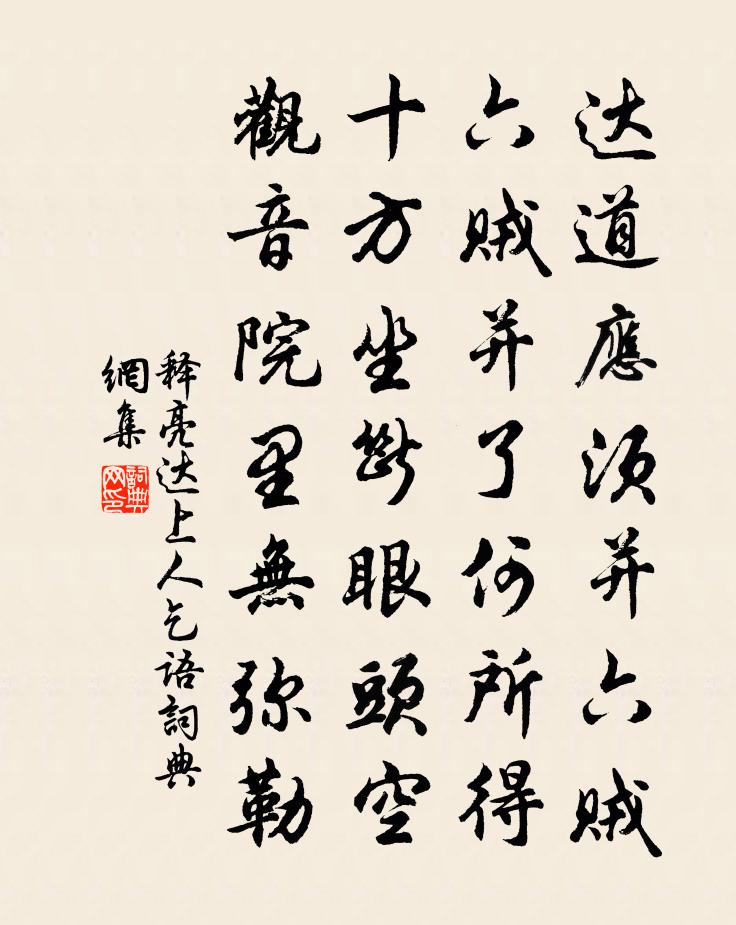 达道應須并六贼
六贼并了何所得
十方坐断眼頭空
觀音院里無弥勒
释亮达上人乞语詞典
網集
詞典
网印